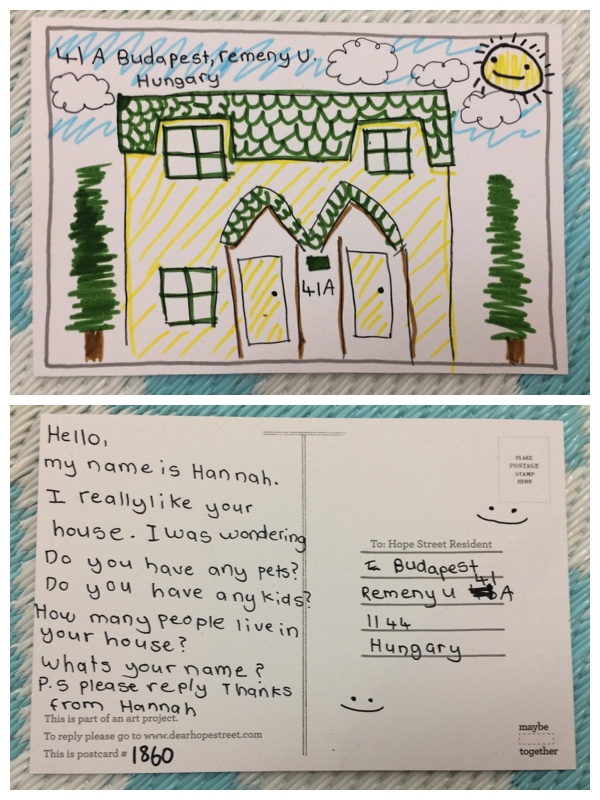 41A Budapest, remeny U.
Hungary
41A
Hello,
my name is Hannah.
I really like your
house. I was wondering
Do you have any pets?
Do you have any kids?
How many people live in
your house?
Whats your name?
P.S please reply Thanks
from Hannah
This is part of an art project.
To reply please go to www.dearhopestreet.com
This is postcard # 1860
PLACE
POSTAGE
STAMP
HERE
To: Hope Street Resident
Budapest
Remeny U 41A
1144
Hungary
maybe
together